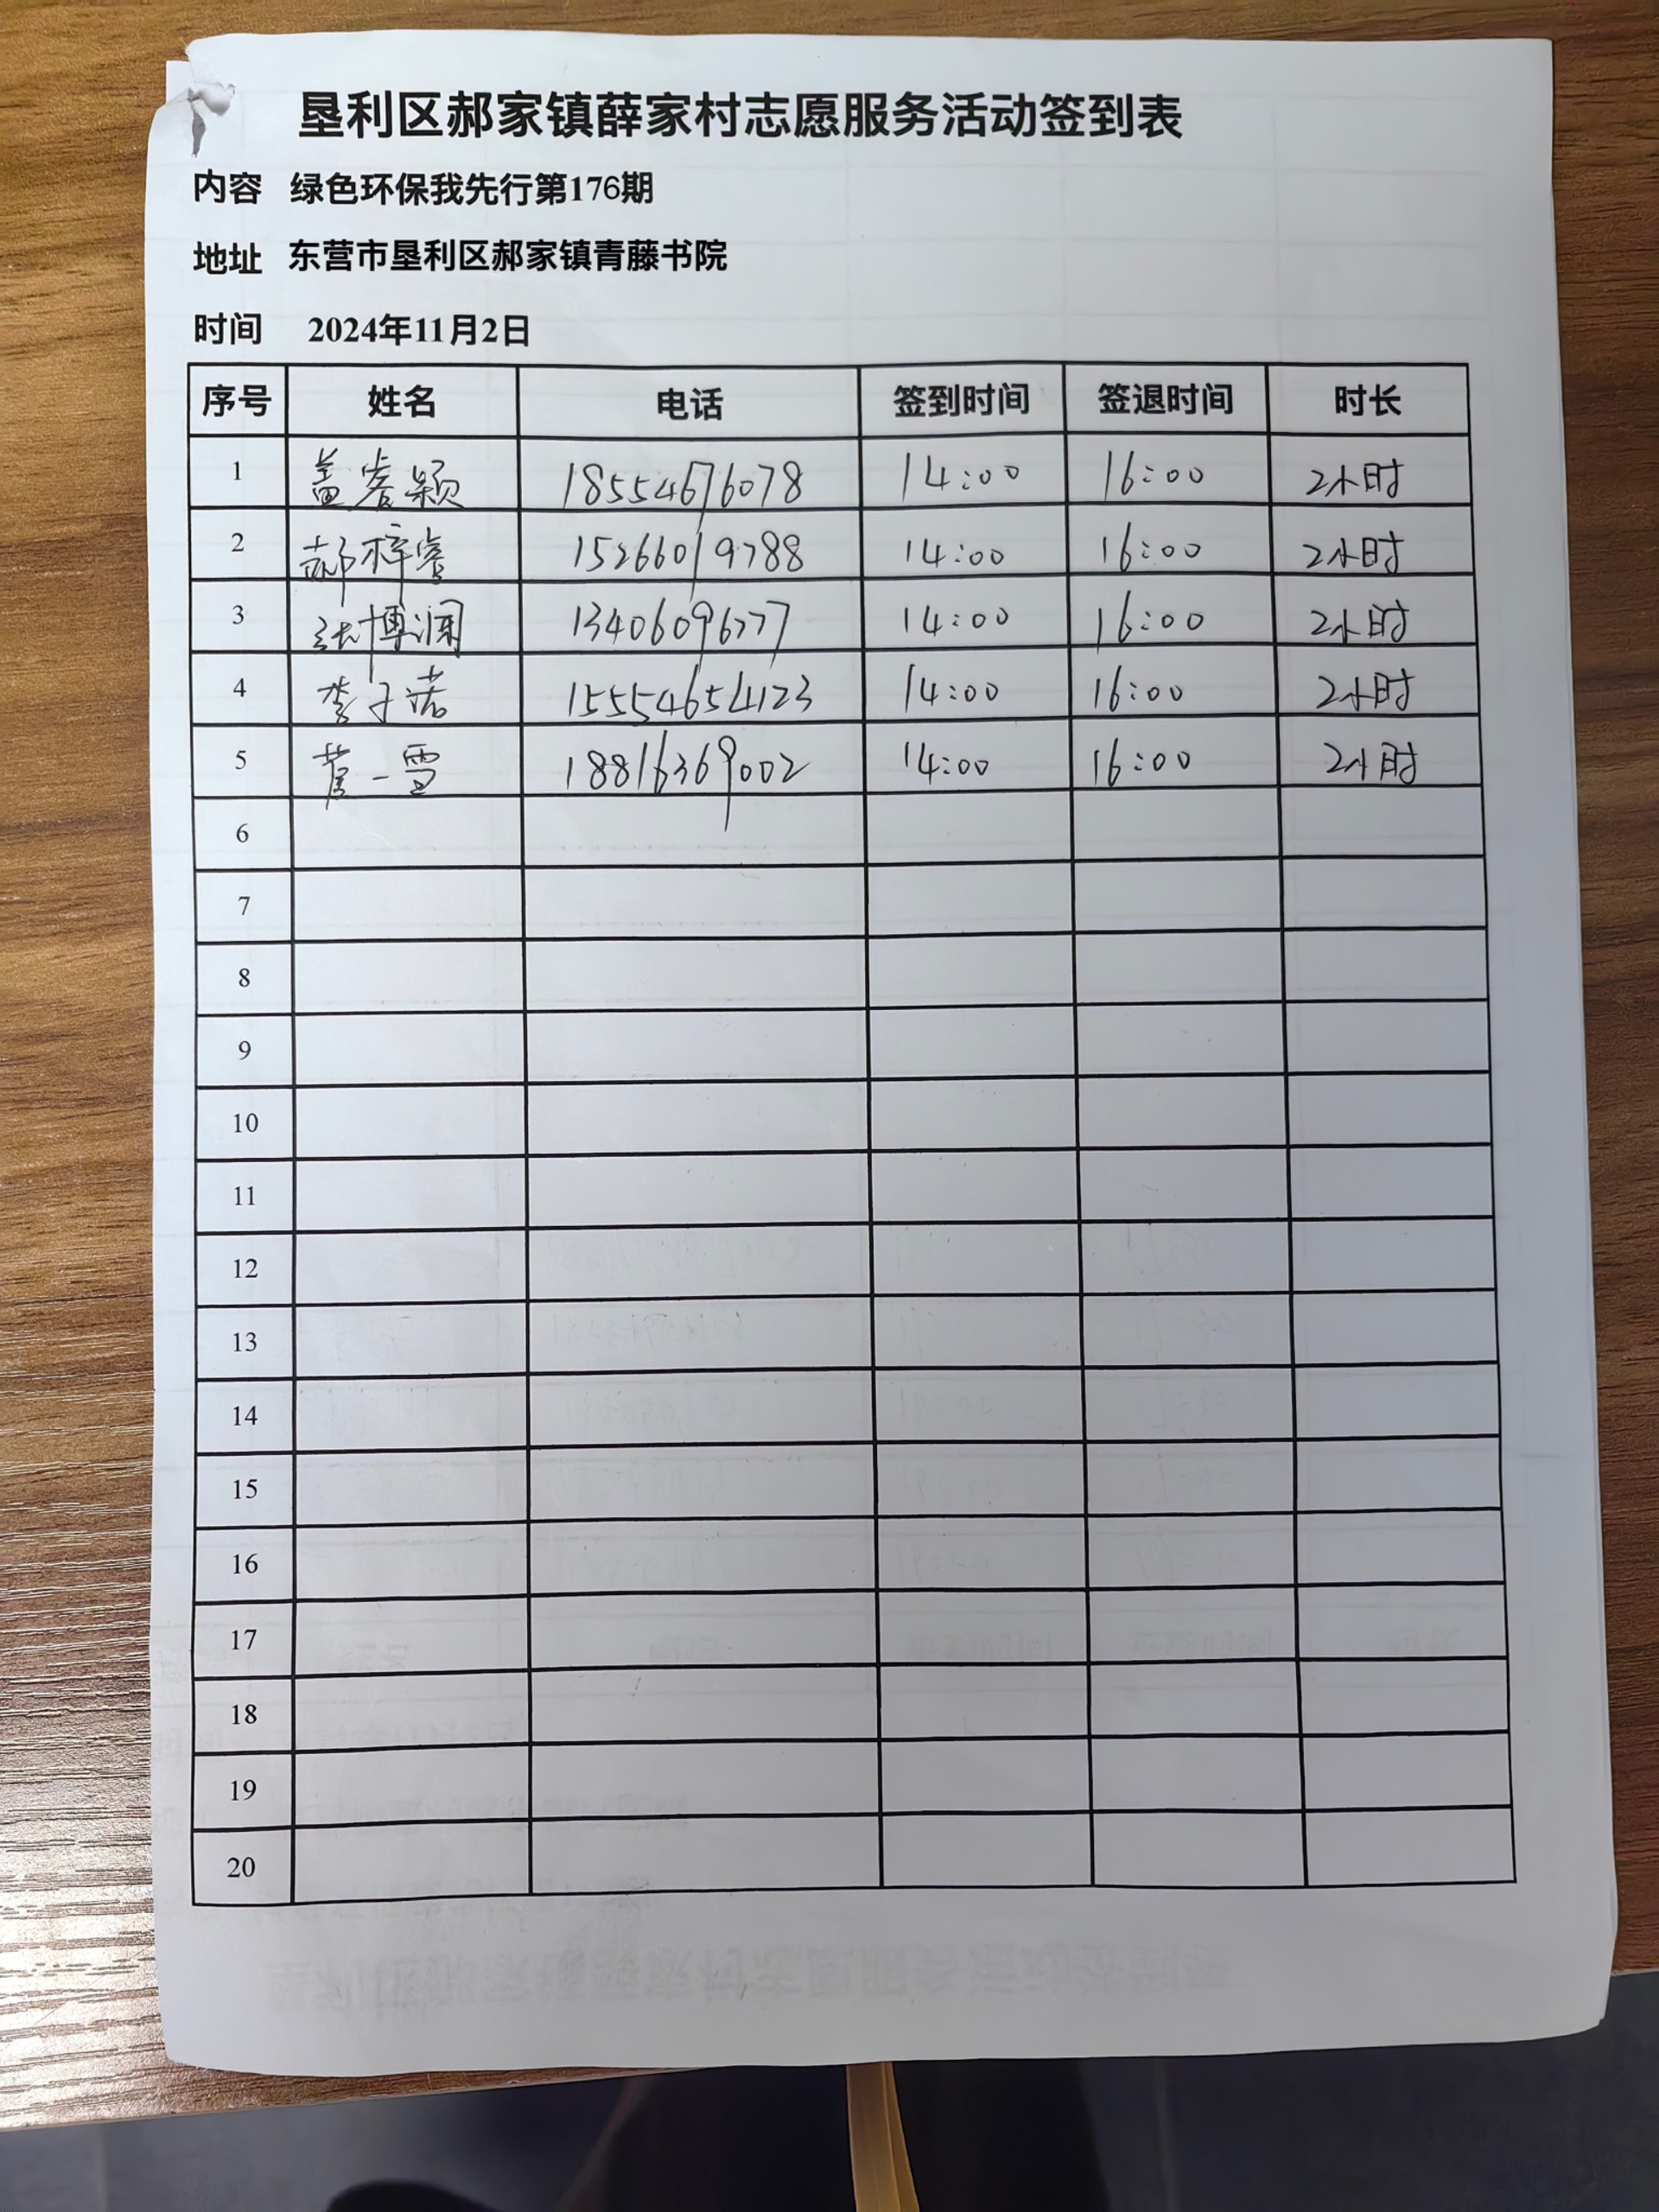 垦利区郝家镇薛家村志愿服务活动签到表
内容 绿色环保我先行第176期
地址 东营市垦利区郝家镇青藤书院
时间 2024年11月2日
序号 姓名 电话 签到时间 签退时间 时长
1 盖睿颖 18554676078 14:00 16:00 2小时
2 郝梓睿 15266019788 14:00 16:00 2小时
3 张博润 13406096777 14:00 16:00 2小时
4 李子诺 15554654123 14:00 16:00 2小时
5 一雪 18816369002 14:00 16:00 2小时
6
7
8
9
10
11
12
13
14
15
16
17
18
19
20